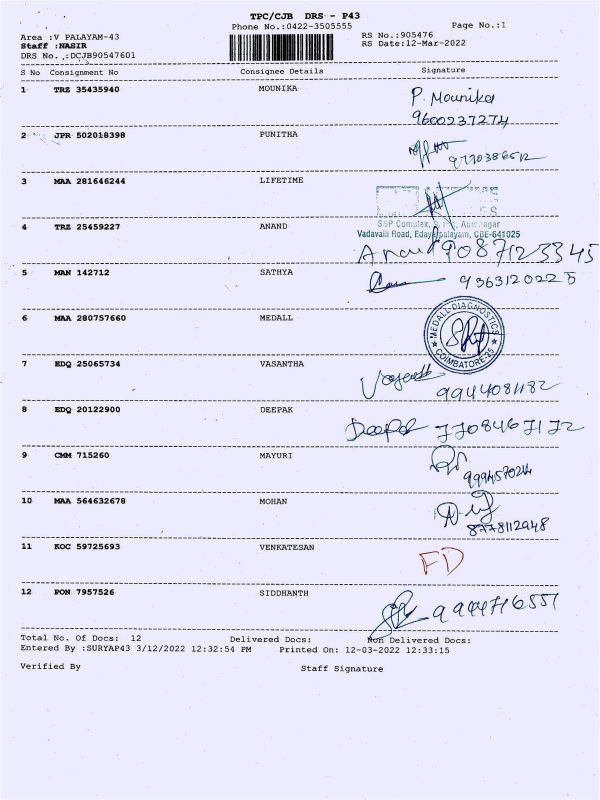 TPC/CJB DRS - P43
Phone No.:0422-3505555 Page No.:1
Area :V PALAYAM-43 RS No.:905476
Staff :NASIR RS Date:12-Mar-2022
DRS No. :DCJB90547601
S No Consignment No Consignee Details Signature
1 TRZ 35435940 MOUNIKA P. Mounika
9600237274
2 JPR 502018398 PUNITHA
9770386512
3 MAA 281646244 LIFETIME
SSP Complex,
Vadavalli Road, Edayarpalayam, CBE-641025
4 TRZ 25459227 ANAND Anand 9087123345
5 MAN 142712 SATHYA 9363120225
6 MAA 280757660 MEDALL MEDALL DIAGNOSTICS
COIMBATORE-25
7 EDQ 25065734 VASANTHA
9944081182
8 EDQ 20122900 DEEPAK Deepak 7708467172
9 CMM 715260 MAYURI
10 MAA 564632678 MOHAN
8778112948
11 KOC 59725693 VENKATESAN FD
12 PON 7957526 SIDDHANTH 9944716551
Total No. Of Docs: 12 Delivered Docs: Non Delivered Docs:
Entered By :SURYAP43 3/12/2022 12:32:54 PM Printed On: 12-03-2022 12:33:15
Verified By Staff Signature